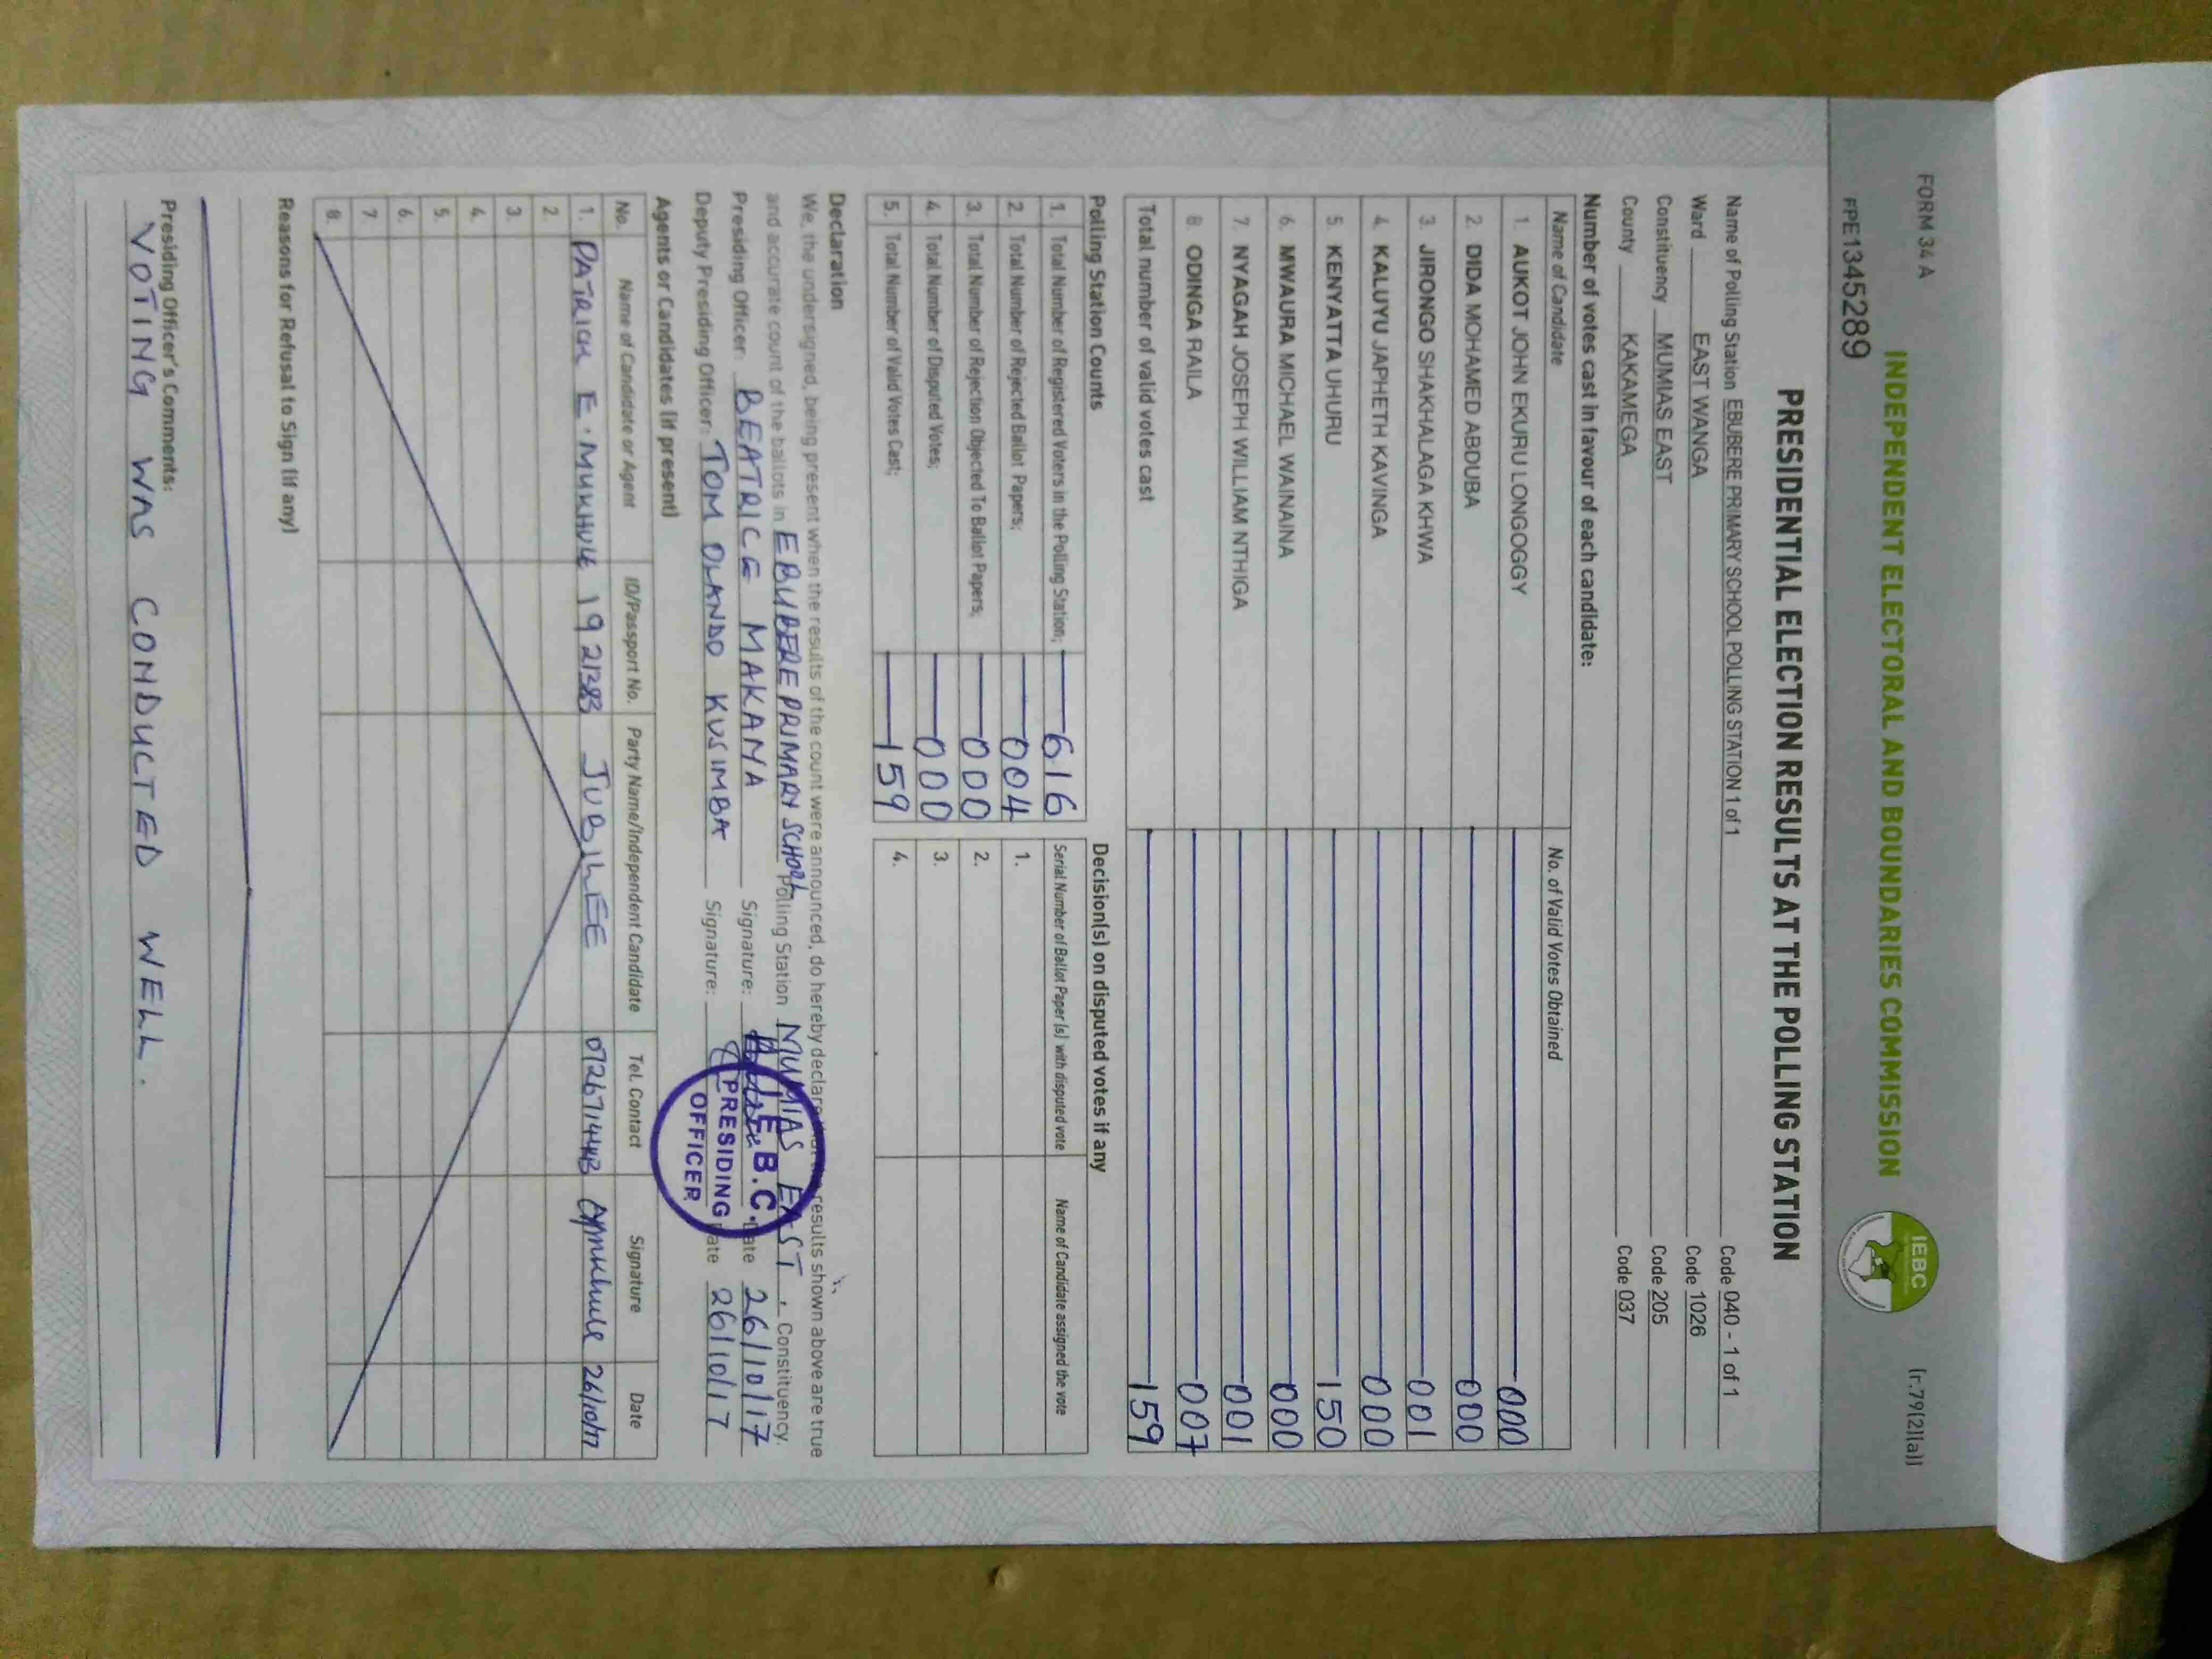 FORM 34 A
(r.79(2)(a))
INDEPENDENT ELECTORAL AND BOUNDARIES COMMISSION
IEBC
FPE1345289
PRESIDENTIAL ELECTION RESULTS AT THE POLLING STATION
Name of Polling Station EBUBERE PRIMARY SCHOOL POLLING STATION 1 of 1 Code 040 - 1 of 1
Ward EAST WANGA Code 1026
Constituency MUMIAS EAST Code 205
County KAKAMEGA Code 037
Number of votes cast in favour of each candidate:
Name of Candidate No. of Valid Votes Obtained
1. AUKOT JOHN EKURU LONGOGGY 000
2. DIDA MOHAMED ABDUBA 000
3. JIRONGO SHAKHALAGA KHWA 001
4. KALUYU JAPHETH KAVINGA 000
5. KENYATTA UHURU 150
6. MWAURA MICHAEL WAINAINA 000
7. NYAGAH JOSEPH WILLIAM NTHIGA 001
8. ODINGA RAILA 007
Total number of valid votes cast 159
Polling Station Counts
1. Total Number of Registered Voters in the Polling Station; 616
2. Total Number of Rejected Ballot Papers; 004
3. Total Number of Rejection Objected To Ballot Papers; 000
4. Total Number of Disputed Votes; 000
5. Total Number of Valid Votes Cast; 159
Decision(s) on disputed votes if any
Serial Number of Ballot Paper (s) with disputed vote Name of Candidate assigned the vote
1.
2.
3.
4.
Declaration
We, the undersigned, being present when the results of the count were announced, do hereby declare that the results shown above are true
and accurate count of the ballots in EBUBERE PRIMARY SCHOOL Polling Station MUMIAS EAST, Constituency.
Presiding Officer: BEATRICE MAKAMA Signature: Date 26/10/17
Deputy Presiding Officer: TOM OLANDO KUSIMBA Signature: Date 26/10/17
I.E.B.C.
PRESIDING
OFFICER
Agents or Candidates (if present)
No. Name of Candidate or Agent ID/Passport No. Party Name/Independent Candidate Tel. Contact Signature Date
1. PATRICK E. MUKHULE 1921383 JUBILEE 26/10/17
2.
3.
4.
5.
6.
7.
8.
Reasons for Refusal to Sign (if any)
Presiding Officer's Comments:
VOTING WAS CONDUCTED WELL.